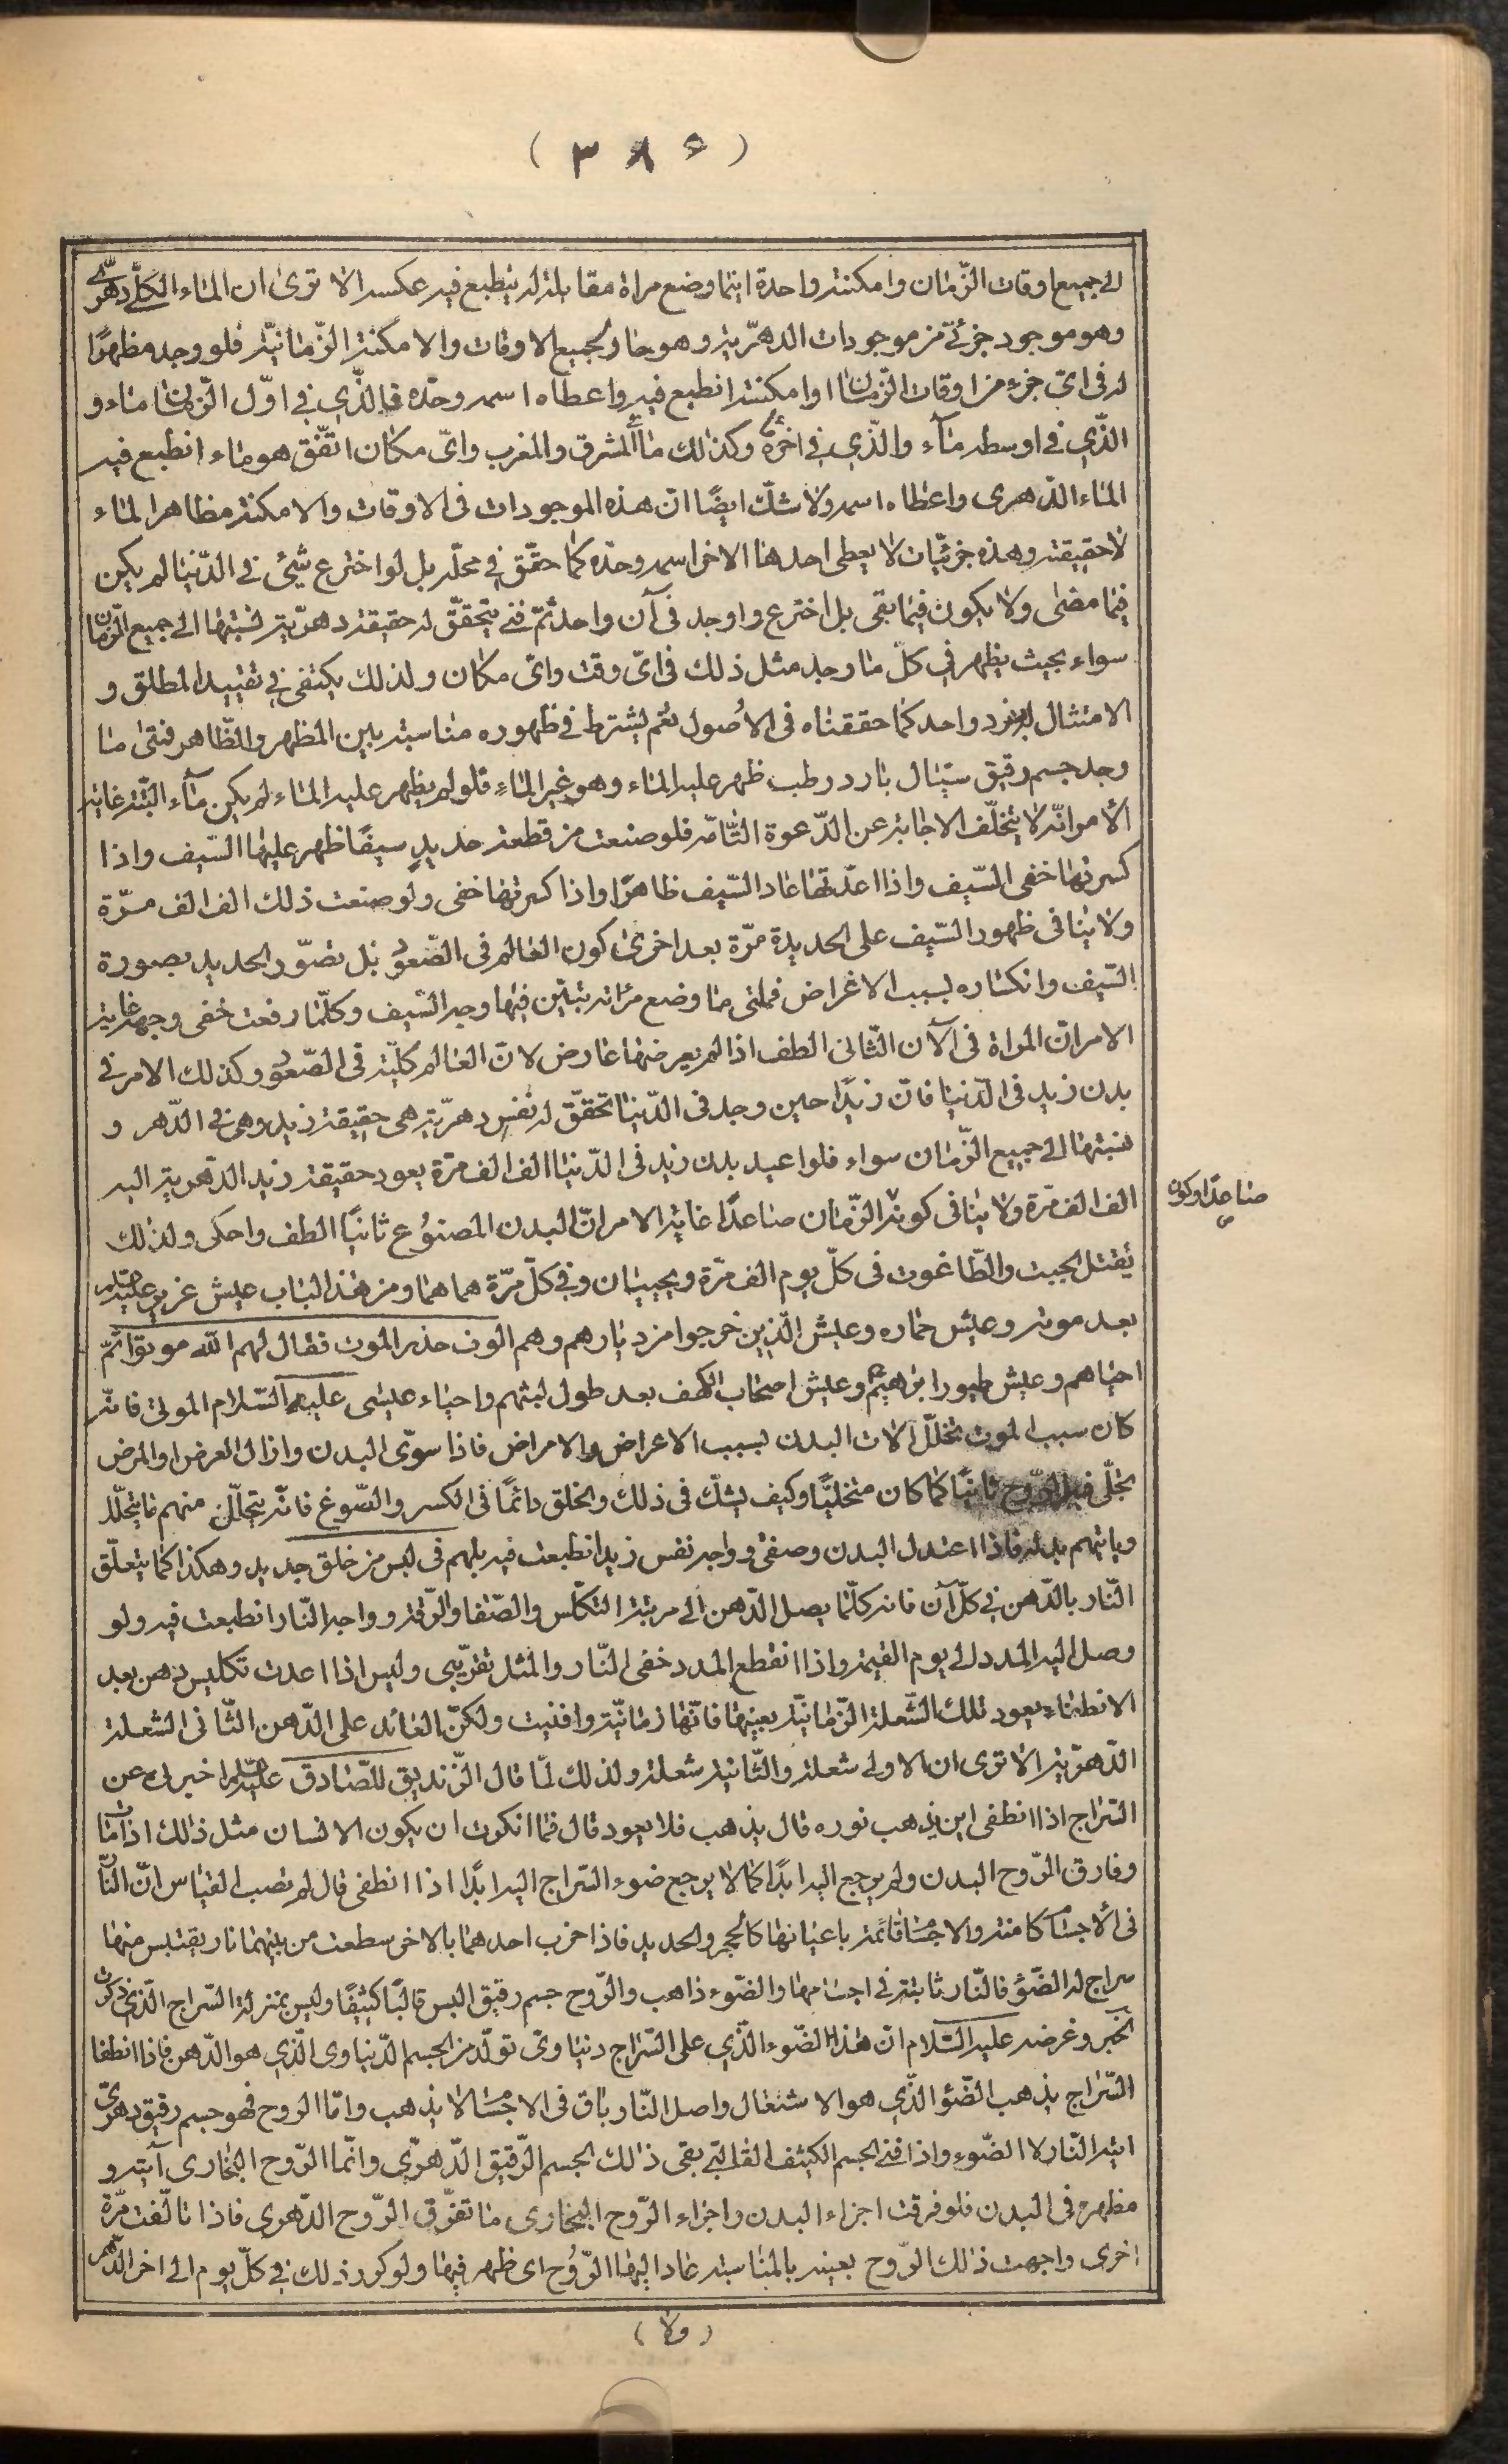 ( ٣٨۶ )
الى جميع اوقات الزّمان وامكنته واحدة اينما وضع مراة مقابلة له ينطبع فيه عكسه الا ترى ان الماء الكلّى دهرّى
وهو موجود جزئىّ من موجودات الدهرّية وهو حاو لجميع الاوقات والامكنة الزّمانيّة فلو وجد مظهرًا
له فى اىّ جزء من اوقات الزّمان او امكنته انطبع فيه واعطاه اسمه وحدّه فالّذي في اوّل الزّمان ماء و
الّذي في اوسطه مآء والّذي في اخره ماء وكذلك ماء المشرق والمغرب واىّ مكان اتّفق هو ماء انطبع فيه
الماء الدّهرى واعطاه اسمه ولا شكّ ايضًا انّ هذه الموجودات فى الاوقات والامكنة مظاهر الماء
لا حقيقته وهذه جزئيّات لا يعطى احدها الاخر اسمه وحدّه كما حقّق في محلّه بل لو اخترع شيئ في الدّنيا لم يكن
فيما مضى ولا يكون فيما بقى بل اخترع واوجد فى آن واحد ثمّ فنى يتحقّق له حقيقة دهرّية نسبتها الى جميع الزّمان
سواء بحيث يظهر في كلّ ما وجد مثل ذلك فى اىّ وقت واىّ مكان ولذلك يكتفى في تقييد المطلق و
الامتثال بفرد واحد كما حققناه فى الاُصول نعم يشترط في ظهوره مناسبة بين المظهر والظّاهر فمتى ما
وجد جسم رقيق سيّال بارد رطب ظهر عليه الماء وهو غير الماء فلو لم يظهر عليه الماء لم يكن مآء البتّة غاية
الأمر انّه لا يتخلّف الاجابة عن الدّعوة التّامّة فلو صنعت من قطعة حديدٍ سيفًا ظهر عليها السّيف واذا
كسرتها خفى السّيف واذا اعدّتها عاد السّيف ظاهرًا واذا كسرتها خفى ولو صنعت ذلك الف الف مرّة
ولا ينافى ظهور السّيف على الحديدة مرّة بعد اخرى كون العالم فى الصّعوُد بل تصوّر الحديد بصورة
السّيف وانكساره بسبب الاغراض فمتى ما وضع مراته تبيّن فيها وجه السّيف وكلّما رفعت خفى وجهه غاية
الامر انّ المراة فى الآن الثّانى الطف اذا لم يعرضها عارض لانّ العالم كلّيّة فى الصّعوُد وكذلك الامر فى
بدن زيد فى الدّنيا فانّ زيدًا حين وجد فى الدّنيا تحقّق له نفس دهرّية هى حقيقة زيد وهى في الدّهر و
نسبتها الى جميع الزّمان سواء فلو اعيد بدن زيد فى الدّنيا الف الف مرّة يعود حقيقة زيد الدّهرية اليه
الف الف مرّة ولا ينافى كونه الزّمان صاعدًا غاية الامر انّ البدن المصنوُع ثانيًا الطف واحكى ولذلك
صاعدًا وكون
يُقتل الجبت والطّاغوت فى كلّ يوم الف مرّة ويحييان وفي كلّ مرّة هما هما ومن هذا الباب عيش عزير عليه السّلام
بعد موته وعيش حماره وعيش الّذين خرجوا من ديارهم وهم الوف حذر الموت فقال لهم الله موتوا ثمّ
احياهم وعيش طيور ابراهيمؑ وعيش اصحاب الكهف بعد طول لبثهم واحياء عيسى عليه السّلام الموتى فانّه
كان سبب الموت تخلّل الات البدن بسبب الاعراض والامراض فاذا سوّى البدن وازال العرض او المرض
تجلّى فيه الرّوح ثانيًا كما كان متخلّيًا وكيف يشكّ فى ذلك والخلق دائمًا فى الكسر والصّوغ فانّه يتحلّل منهم ما يتحلّل
وياتيهم بدله فاذا اعتدل البدن وصفى وواجه نفس زيد انطبعت فيه بل هم فى لبس من خلق جديد وهكذا كما يتعلّق
النّار بالدّهن في كلّ آن فانه كلّما يصل الدّهن الى مرتبة التكلّس والصّفا والرّقة وواجه النّار انطبعت فيه ولو
وصل اليه المدد الى يوم القيمة واذا انقطع المدد خفى النّار والمثل تقرّيبى وليس اذا اعدت تكليس دهن بعد
الانطفاء يعود تلك الشّعلة الزّمانيّة بعينها فانّها زمانيّة وافنيت ولكنّ العائد على الدّهن الثّانى الشعلة
الدّهرّية الا ترى ان الاولى شعلة والثّانية شعلة ولذلك لمّا قال الزّنديق للصّادق عليه السّلام اخبرنى عن
السّراج اذا انطفى اين يذهب نوره قال يذهب فلا يعود قال فما انكرت ان يكون الانسان مثل ذلك اذا مات
وفارق الرّوح البدن ولم يرجع اليه ابدًا كما لا يرجع ضوء السّراج اليه ابدًا اذا انطفى قال لم تصب القياس انّ النّار
فى الأجسام كامنة والاجسام قائمة باعيانها كالحجر والحديد فاذا ضرب احدهما بالاخر سطعت من بينهما نار يقتبس منها
سراج له الضّوُ فالنّار ثابتة في اجسامها والضّوء ذاهب والرّوح جسم رقيق البس قالبًا كثيفًا وليس بمنزلة السّراج الّذي ذكرت
الخبر وغرضه عليه السّلام انّ هذا الضّوء الّذي على السّراج دنياوىّ تولّد من الجسم الدّنياوى الّذي هو الدّهن فاذا انطفا
السّراج يذهب الضّوُ الّذي هو الاشتعال واصل النّار باق فى الاجسام لا يذهب وامّا الروح فهو جسم رقيق دهرىّ
ايته النّار لا الضّوء واذا فنى الجسم الكثيف القالبىّ بقى ذلك الجسم الرّقيق الدّهرّى وانّما الرّوح البخارى آيته و
مظهره فى البدن فلو فرقت اجزاء البدن واجزاء الرّوح البخارى ما تفرّق الرّوح الدّهرى فاذا تالّفت مرّة
اخرى واجهت ذلك الرّوح بعينه بالمناسبة عاد اليها الرّوُح اى ظهر فيها ولو كرر ذلك في كلّ يوم الى اخر الدّهر
( ولا )